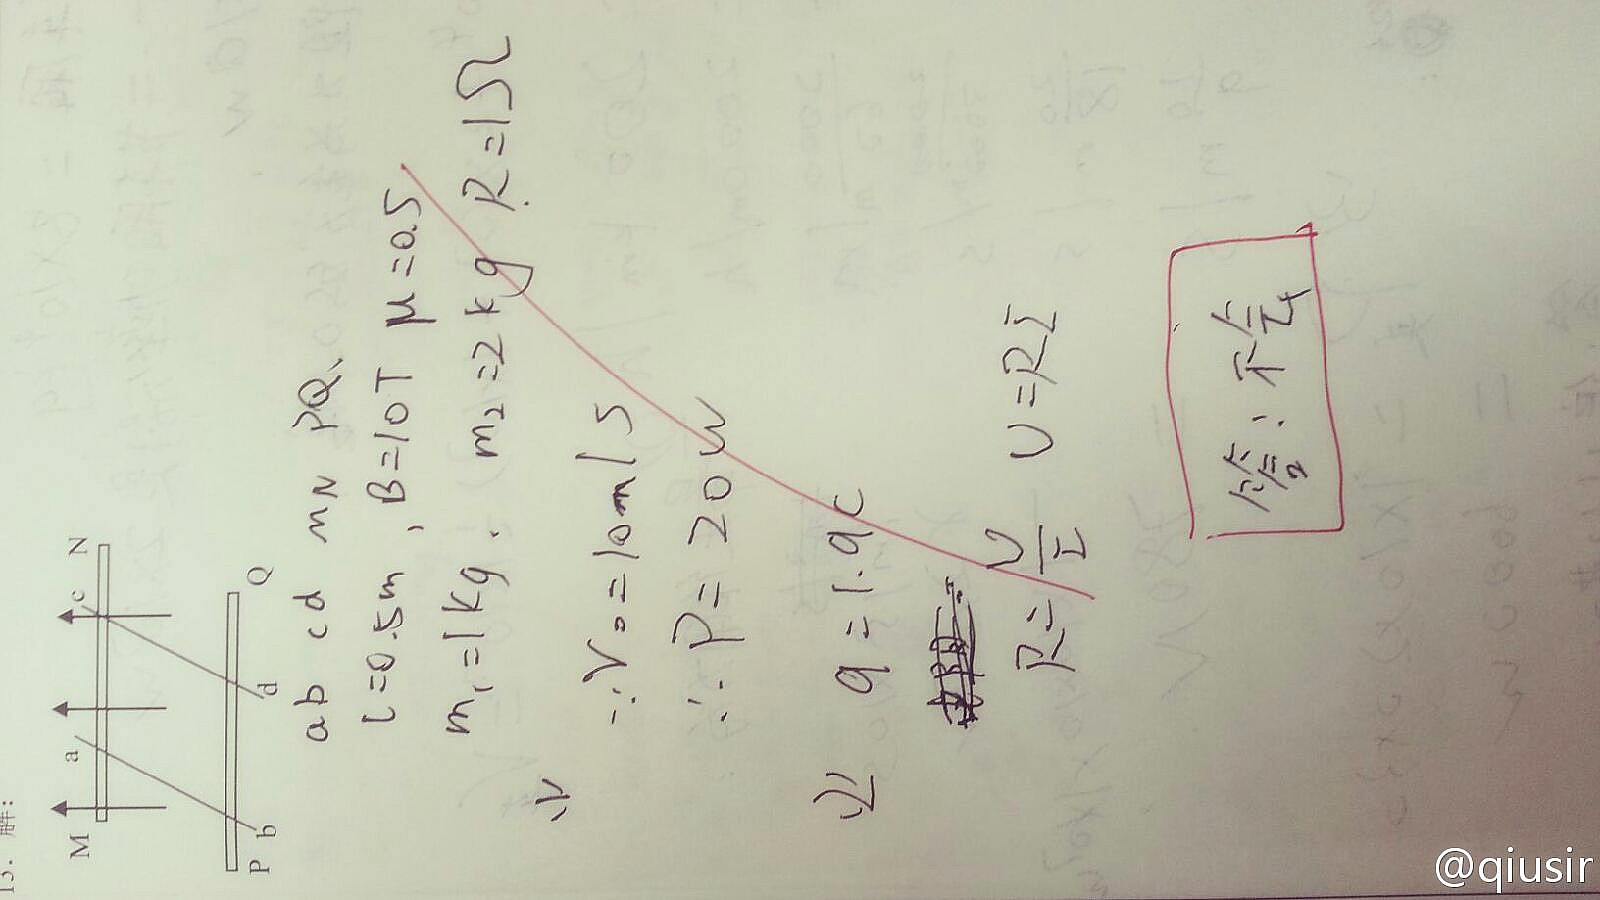 13. 解:
M a c N
P b d Q
ab cd MN PQ.
l=0.5m, B=10T μ=0.5
m₁=1kg. m₂=2kg R=1Ω
1)
∵V₀=10m/s
∴P=20W
2)
q=1.9C
R=U/I U=RI
答:不乍
@qiusir